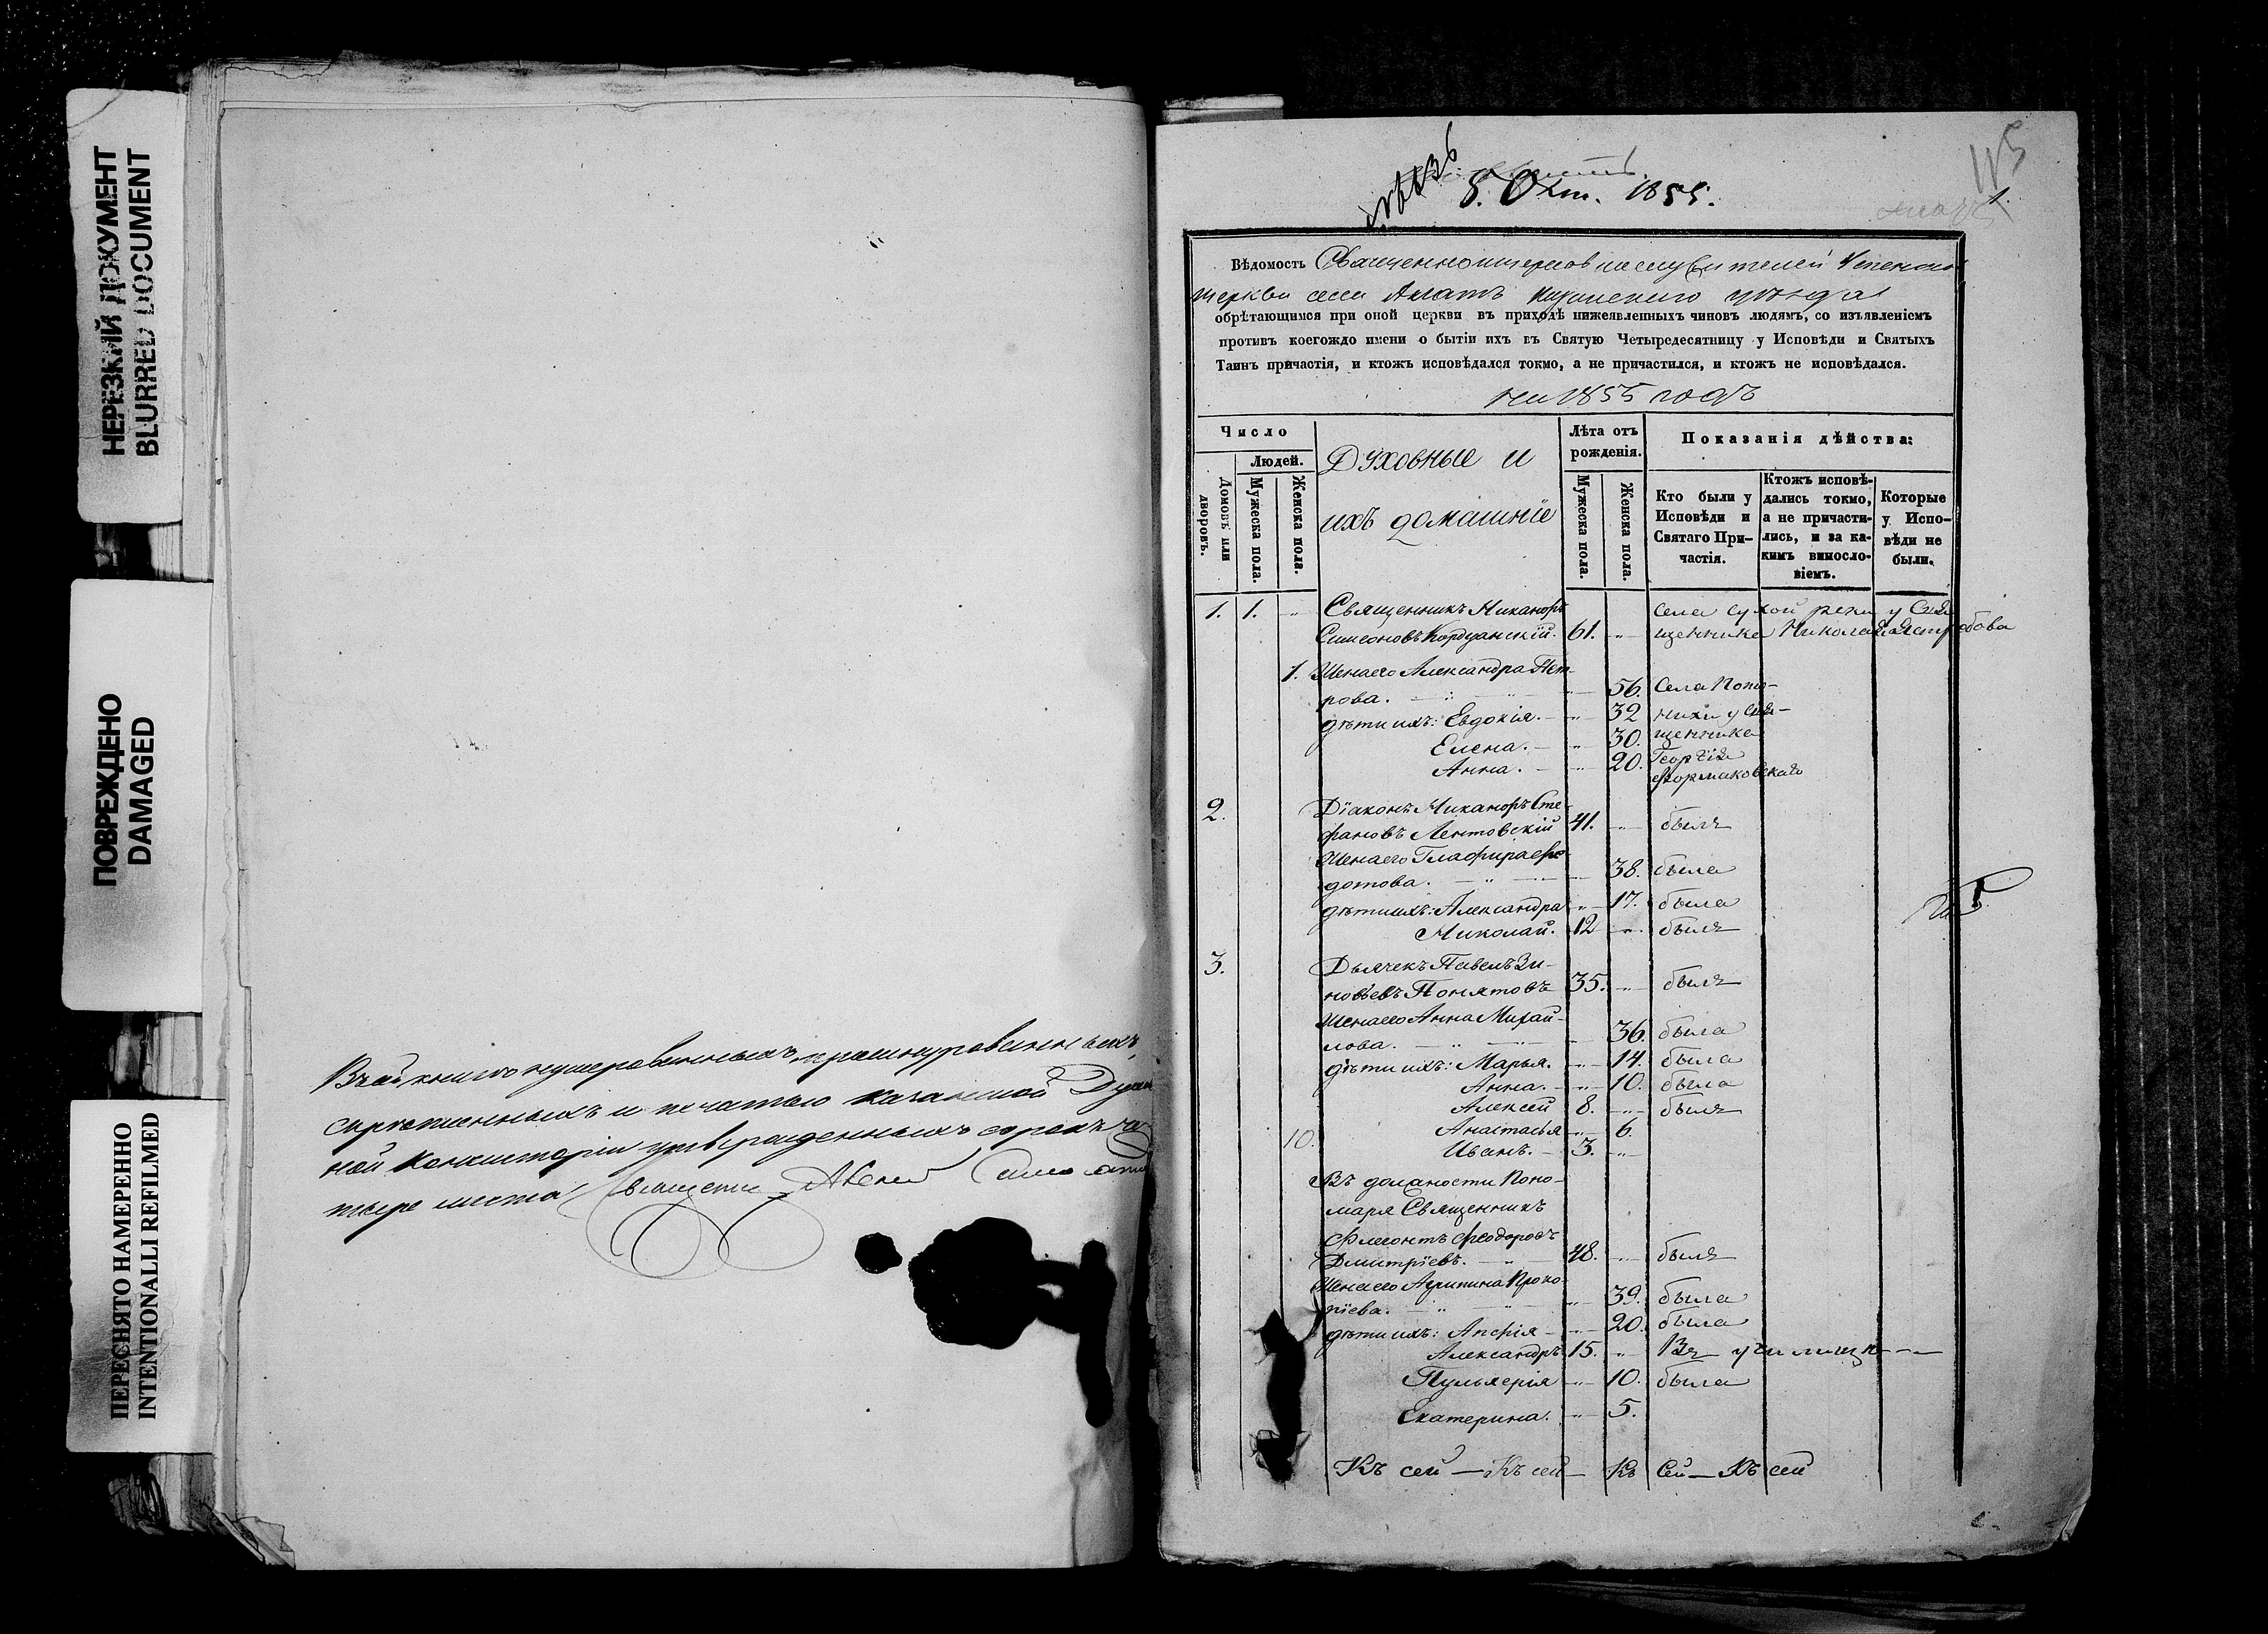 НЕРЕЗКИЙ ДОКУМЕНТ
BLURRED DOCUMENT
ПОВРЕЖДЕНО
DAMAGED
ПЕРЕСНЯТО НАМЕРЕННО
INTENTIONALLI REFILMED
нумерованныхъ, прошнурованныхъ,
скрѣпленныхъ и печатью Казанской
ной Консисторіи утвержденныхъ сорокъ
тыре листа
8. Окт. 1855.
115
1.
Вѣдомость Священноцерковнослужителей Успенской
церкви села Алатъ уѣзда
обрѣтающимся при оной церкви въ приходѣ нижеявленныхъ чиновъ людямъ, со изъявленіемъ
противъ коегождо имени о бытіи ихъ въ Святую Четыредесятницу у Исповѣди и Святыхъ
Таинъ причастія, и ктожъ исповѣдался токмо, а не причастился, и ктожъ не исповѣдался.
на 1855 годъ
Число
Людей.
Домовъ или дворовъ.
Мужеска пола.
Женска пола.
Духовные и
ихъ домашніе
Лѣта отъ рожденія.
Мужеска пола.
Женска пола.
Показанія дѣйства:
Кто были у Исповѣди и Святаго Причастія.
Ктожъ исповѣдались токмо, а не причастились, и за какимъ винословіемъ.
Которые у Исповѣди не были.
1. 1. Священникъ Никаноръ Села Сухой реки у Свя
Симеоновъ Кордуанскій. 61. щенника Николая Ястребова
1. Жена его Александра Пет-
рова. 56. Села Попо-
дѣти ихъ: Евдокія. 32 у Свя-
Елена. 30. щенника
Анна. 20. Георгія
2. Діаконъ Никаноръ Сте-
фановъ Лентовскій 41. былъ
Жена его Глафира Фео-
дотова. 38. была
дѣти ихъ: Александра 17. была
Николай. 12 былъ
3. Дьячекъ Павелъ Зи-
новьевъ Понятовъ 35. былъ
Жена его Анна Михай-
лова. 36. была
дѣти ихъ: Марья. 14. была
Анна. 10. была
Алексей 8. былъ
Анастасья 6.
10. Иванъ. 3.
Въ должности Поно-
маря Священникъ
Филонтъ Феодоровъ
Дмитріевъ. 48. былъ
Жена его Агрипина Проко-
піева. 39. была
дѣти ихъ: Апфія 20. была
Александръ 15. Въ училищѣ
Пульхерія 10. была
Екатерина. 5.
Къ сей — Къ сей — Къ Сей — Къ сей